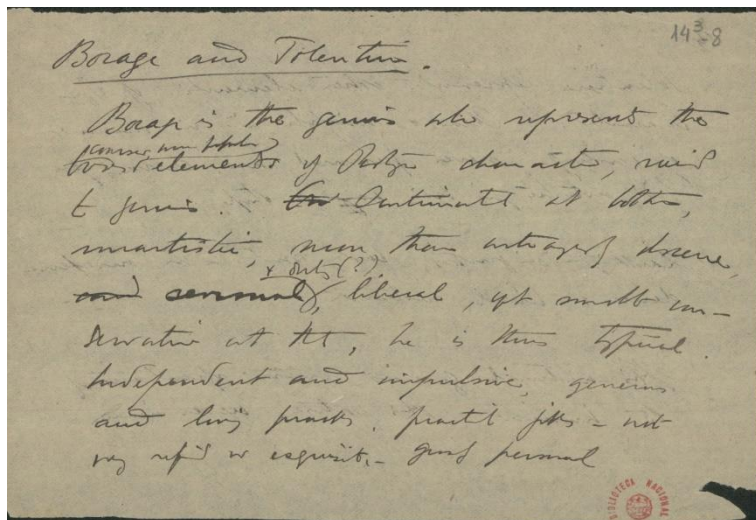 14³-8
Bocage and Tolentino.
Bocage is the genius who represents the
coarser, more popular
elements of Portug. character, raised
to genius. Sentimental at bottom,
inartistic, more than outrageously obscene,
& dirty (?)
and sensual, liberal, yet smally con-
servative at that, he is thus typical.
Independent and impulsive, generous
and loving pranks, practical jokes — not
very refined or exquisite, — grossly personal
BIBLIOTECA NACIONAL